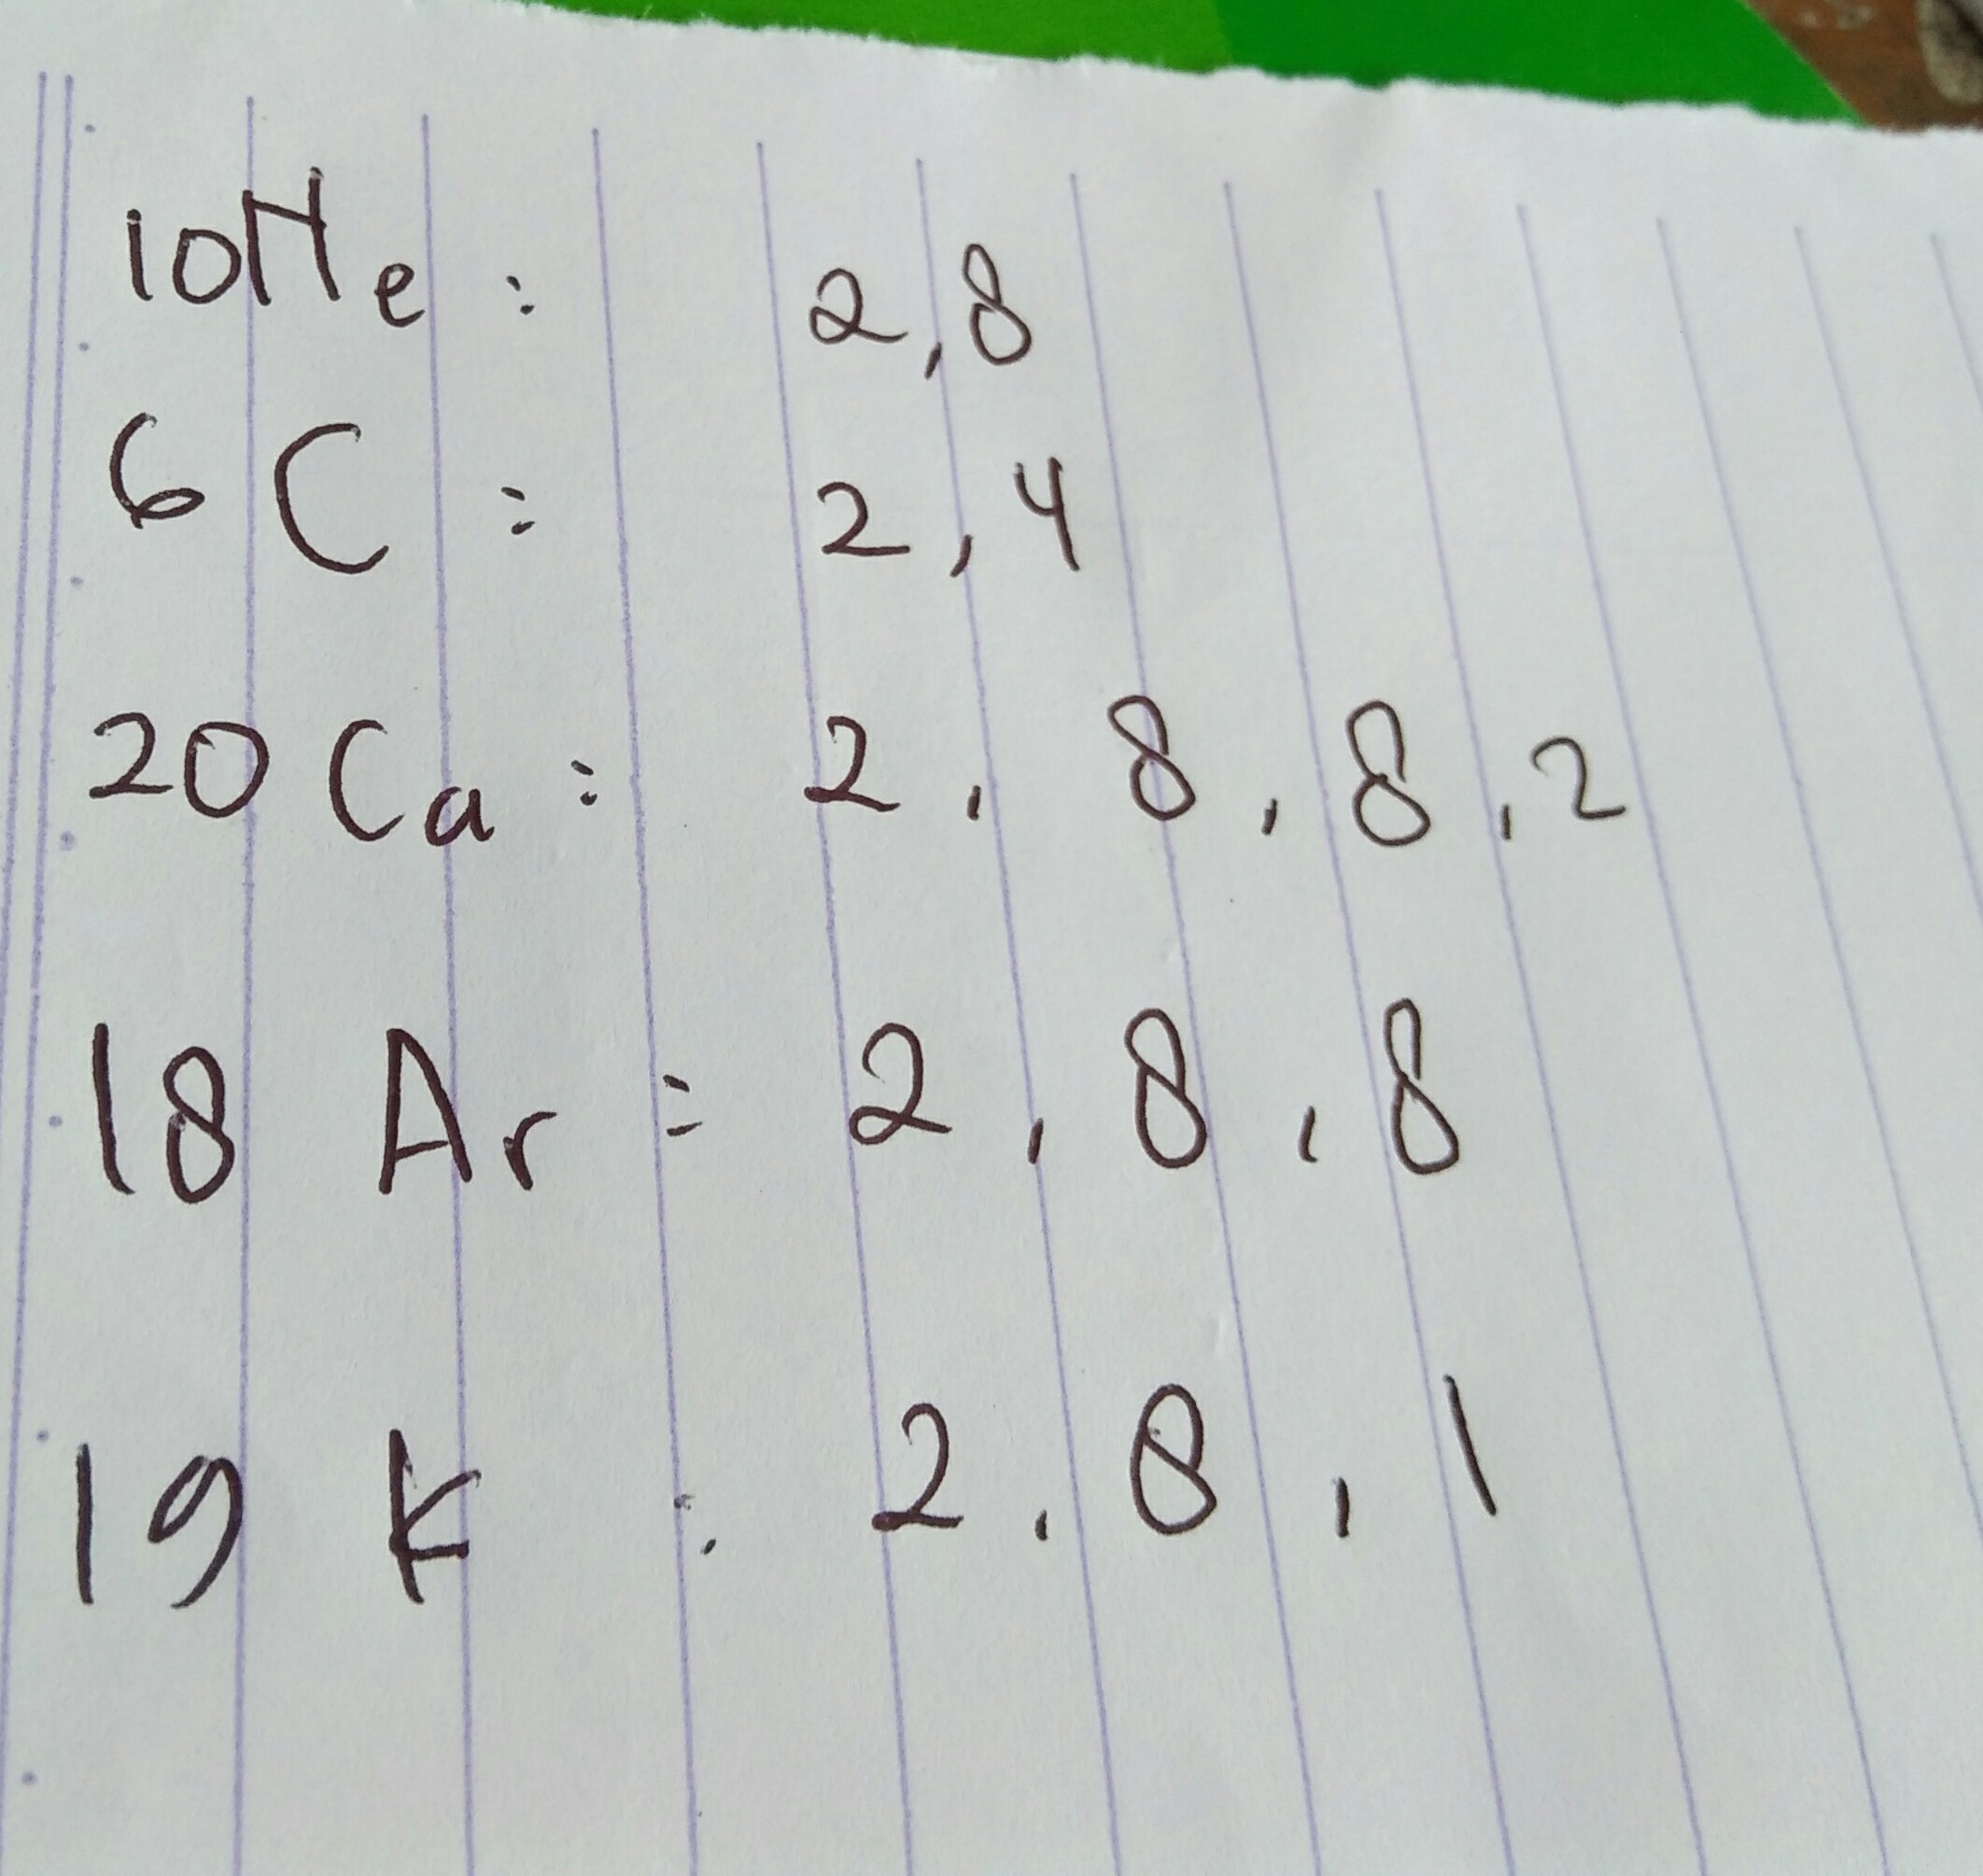 10Ne : 2,8
6 C : 2,4
20 Ca : 2, 8, 8, 2
18 Ar : 2, 8, 8
19 K : 2, 8, 1